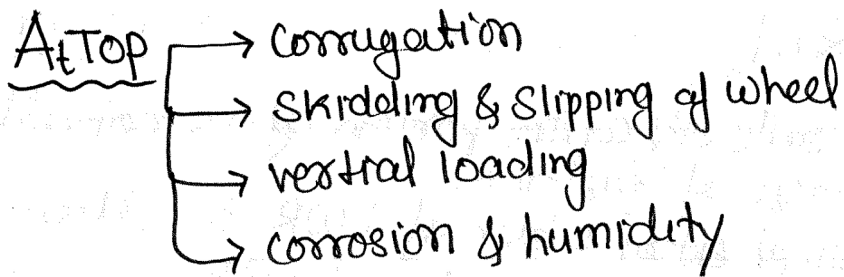 At TOP
corrugation
skidding & slipping of wheel
vertial loading
corrosion & humidity